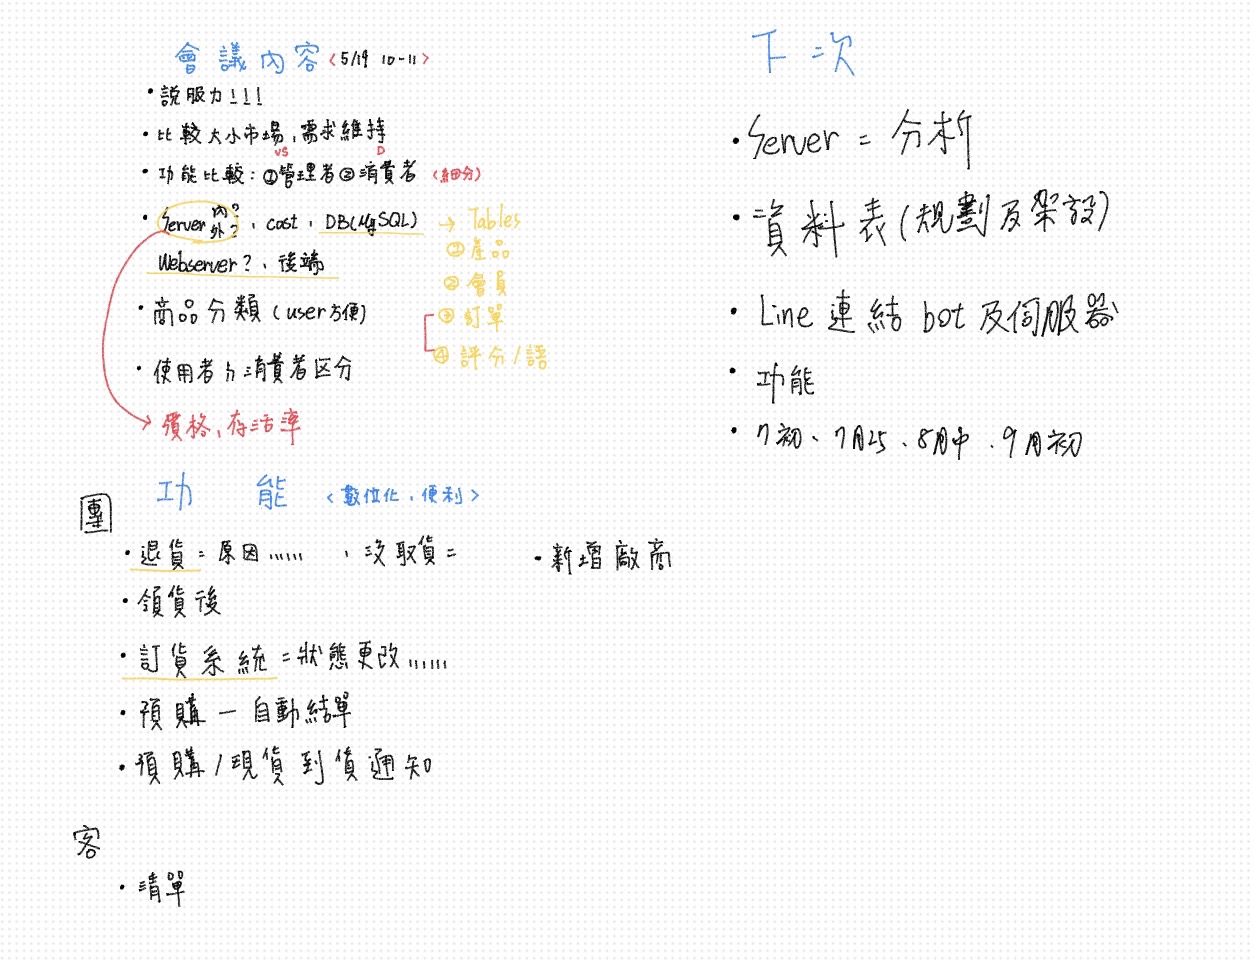 會議內容 <5/19 10-11>
• 說服力!!!
• 比較大小市場、需求維持
vs D
• 功能比較：①管理者②消費者 (細分)
• Server 內? 外?、cost、DB(MySQL) → Tables
① 產品
Webserver?、後端
② 會員
• 商品分類 (user方便)
③ 訂單
④ 評分/語
• 使用者 消費者区分
價格、存活率
功能 <數位化、便利>
團
• 退貨 = 原因...... 、沒取貨 =
• 新增廠商
• 領貨後
• 訂貨系統 = 狀態更改......
• 預購 — 自動結單
• 預購/現貨到貨通知
客
• 清單
下次
• Server = 分析
• 資料表(規劃及架設)
• Line 連結 bot 及伺服器
• 功能
• 7初、7月25、8月中、9月初